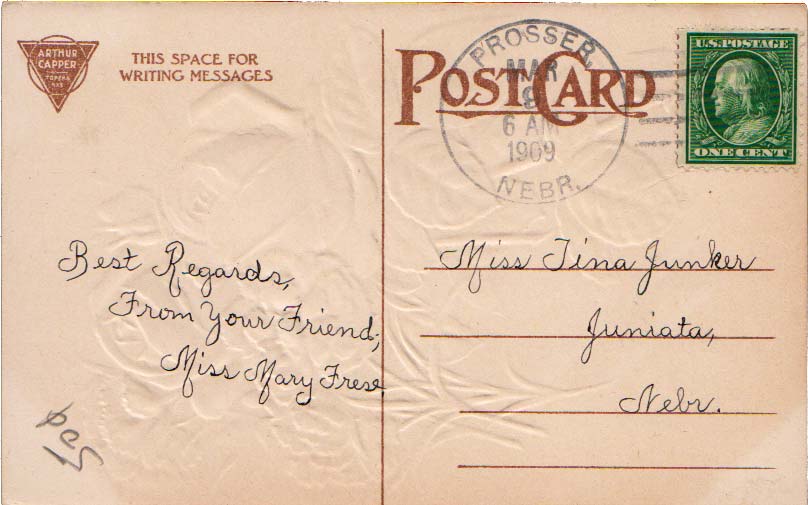 ARTHUR
CAPPER
TOPEKA
KAS
THIS SPACE FOR
WRITING MESSAGES
POST CARD
PROSSER,
MAR
9
6 AM
1909
NEBR.
U.S. POSTAGE
ONE CENT
Best Regards,
From Your Friend,
Miss Mary Frese
Miss Tina Junker
Juniata,
Nebr.